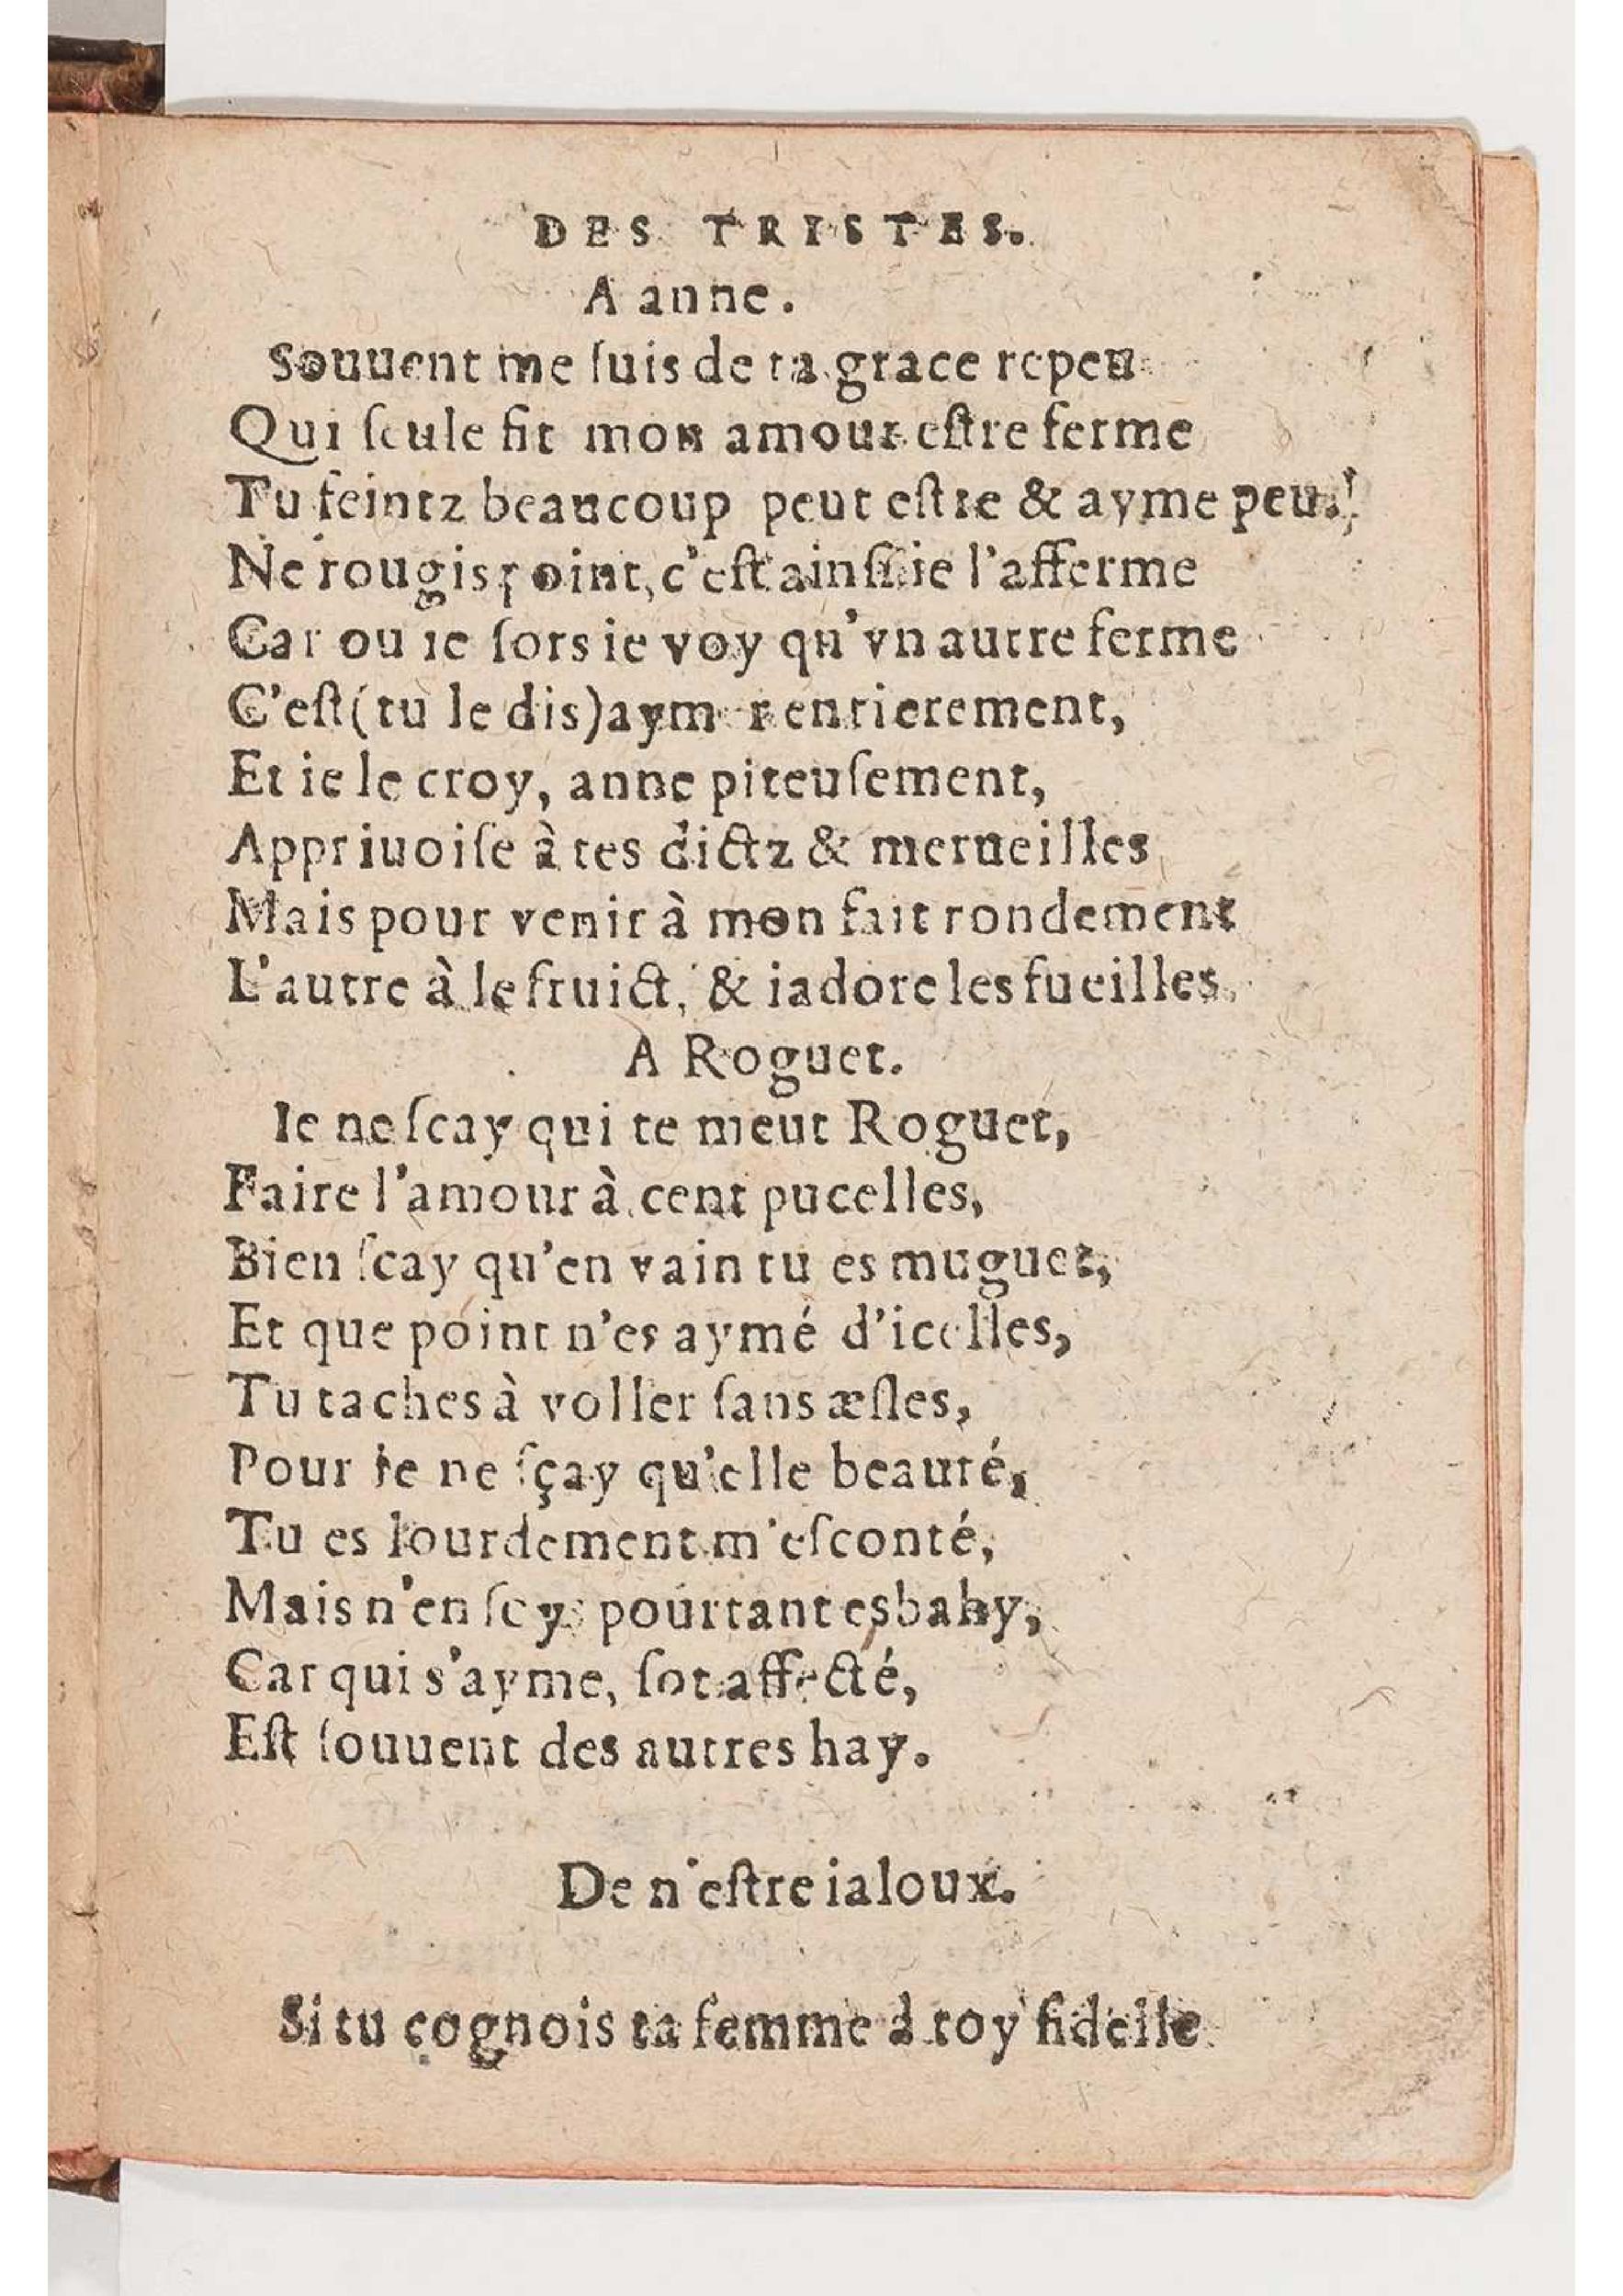 DES TRISTES.
A anne.
Souuent me ſuis de ta grace repeu
Qui ſeule fit mon amour eſtre ferme
Tu feintz beaucoup peut eſtre & ayme peu.
Ne rougis point, c'eſt ainſi ie l'afferme
Car ou ie ſors ie voy qu'vn autre ferme
C'eſt (tu le dis) aymer entierement,
Et ie le croy, anne piteuſement,
Appriuoiſe à tes dictz & merueilles
Mais pour venir à mon fait rondement
L'autre à le fruict, & iadore les fueilles.
A Roguet.
Ie ne ſcay qui te meut Roguet,
Faire l'amour à cent pucelles,
Bien ſcay qu'en vain tu es muguet,
Et que point n'es aymé d'icelles,
Tu taches à voller ſans æſles,
Pour ie ne ſçay qu'elle beauté,
Tu es lourdement m'eſconté,
Mais n'en ſoys pourtant esbahy,
Car qui s'ayme, ſot affecté,
Eſt ſouuent des autres hay.
De n'eſtre ialoux.
Si tu cognois ta femme à toy fidelle